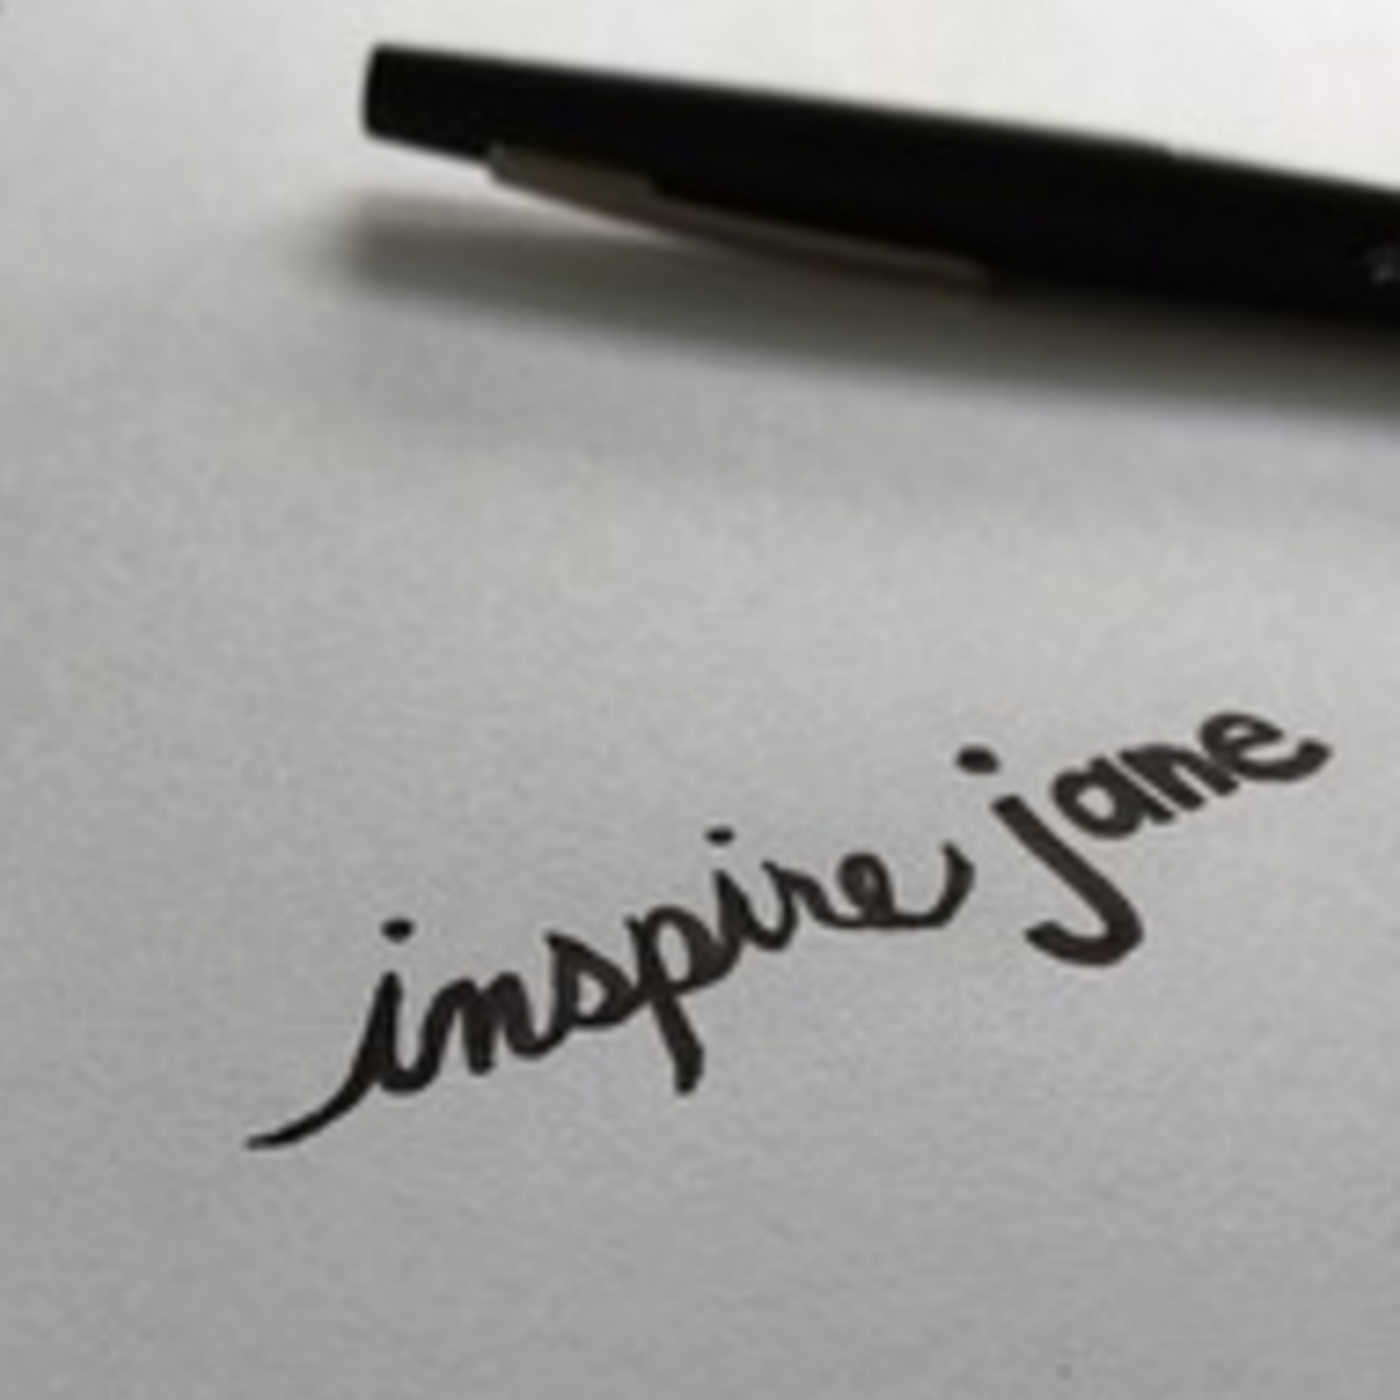 inspire jane